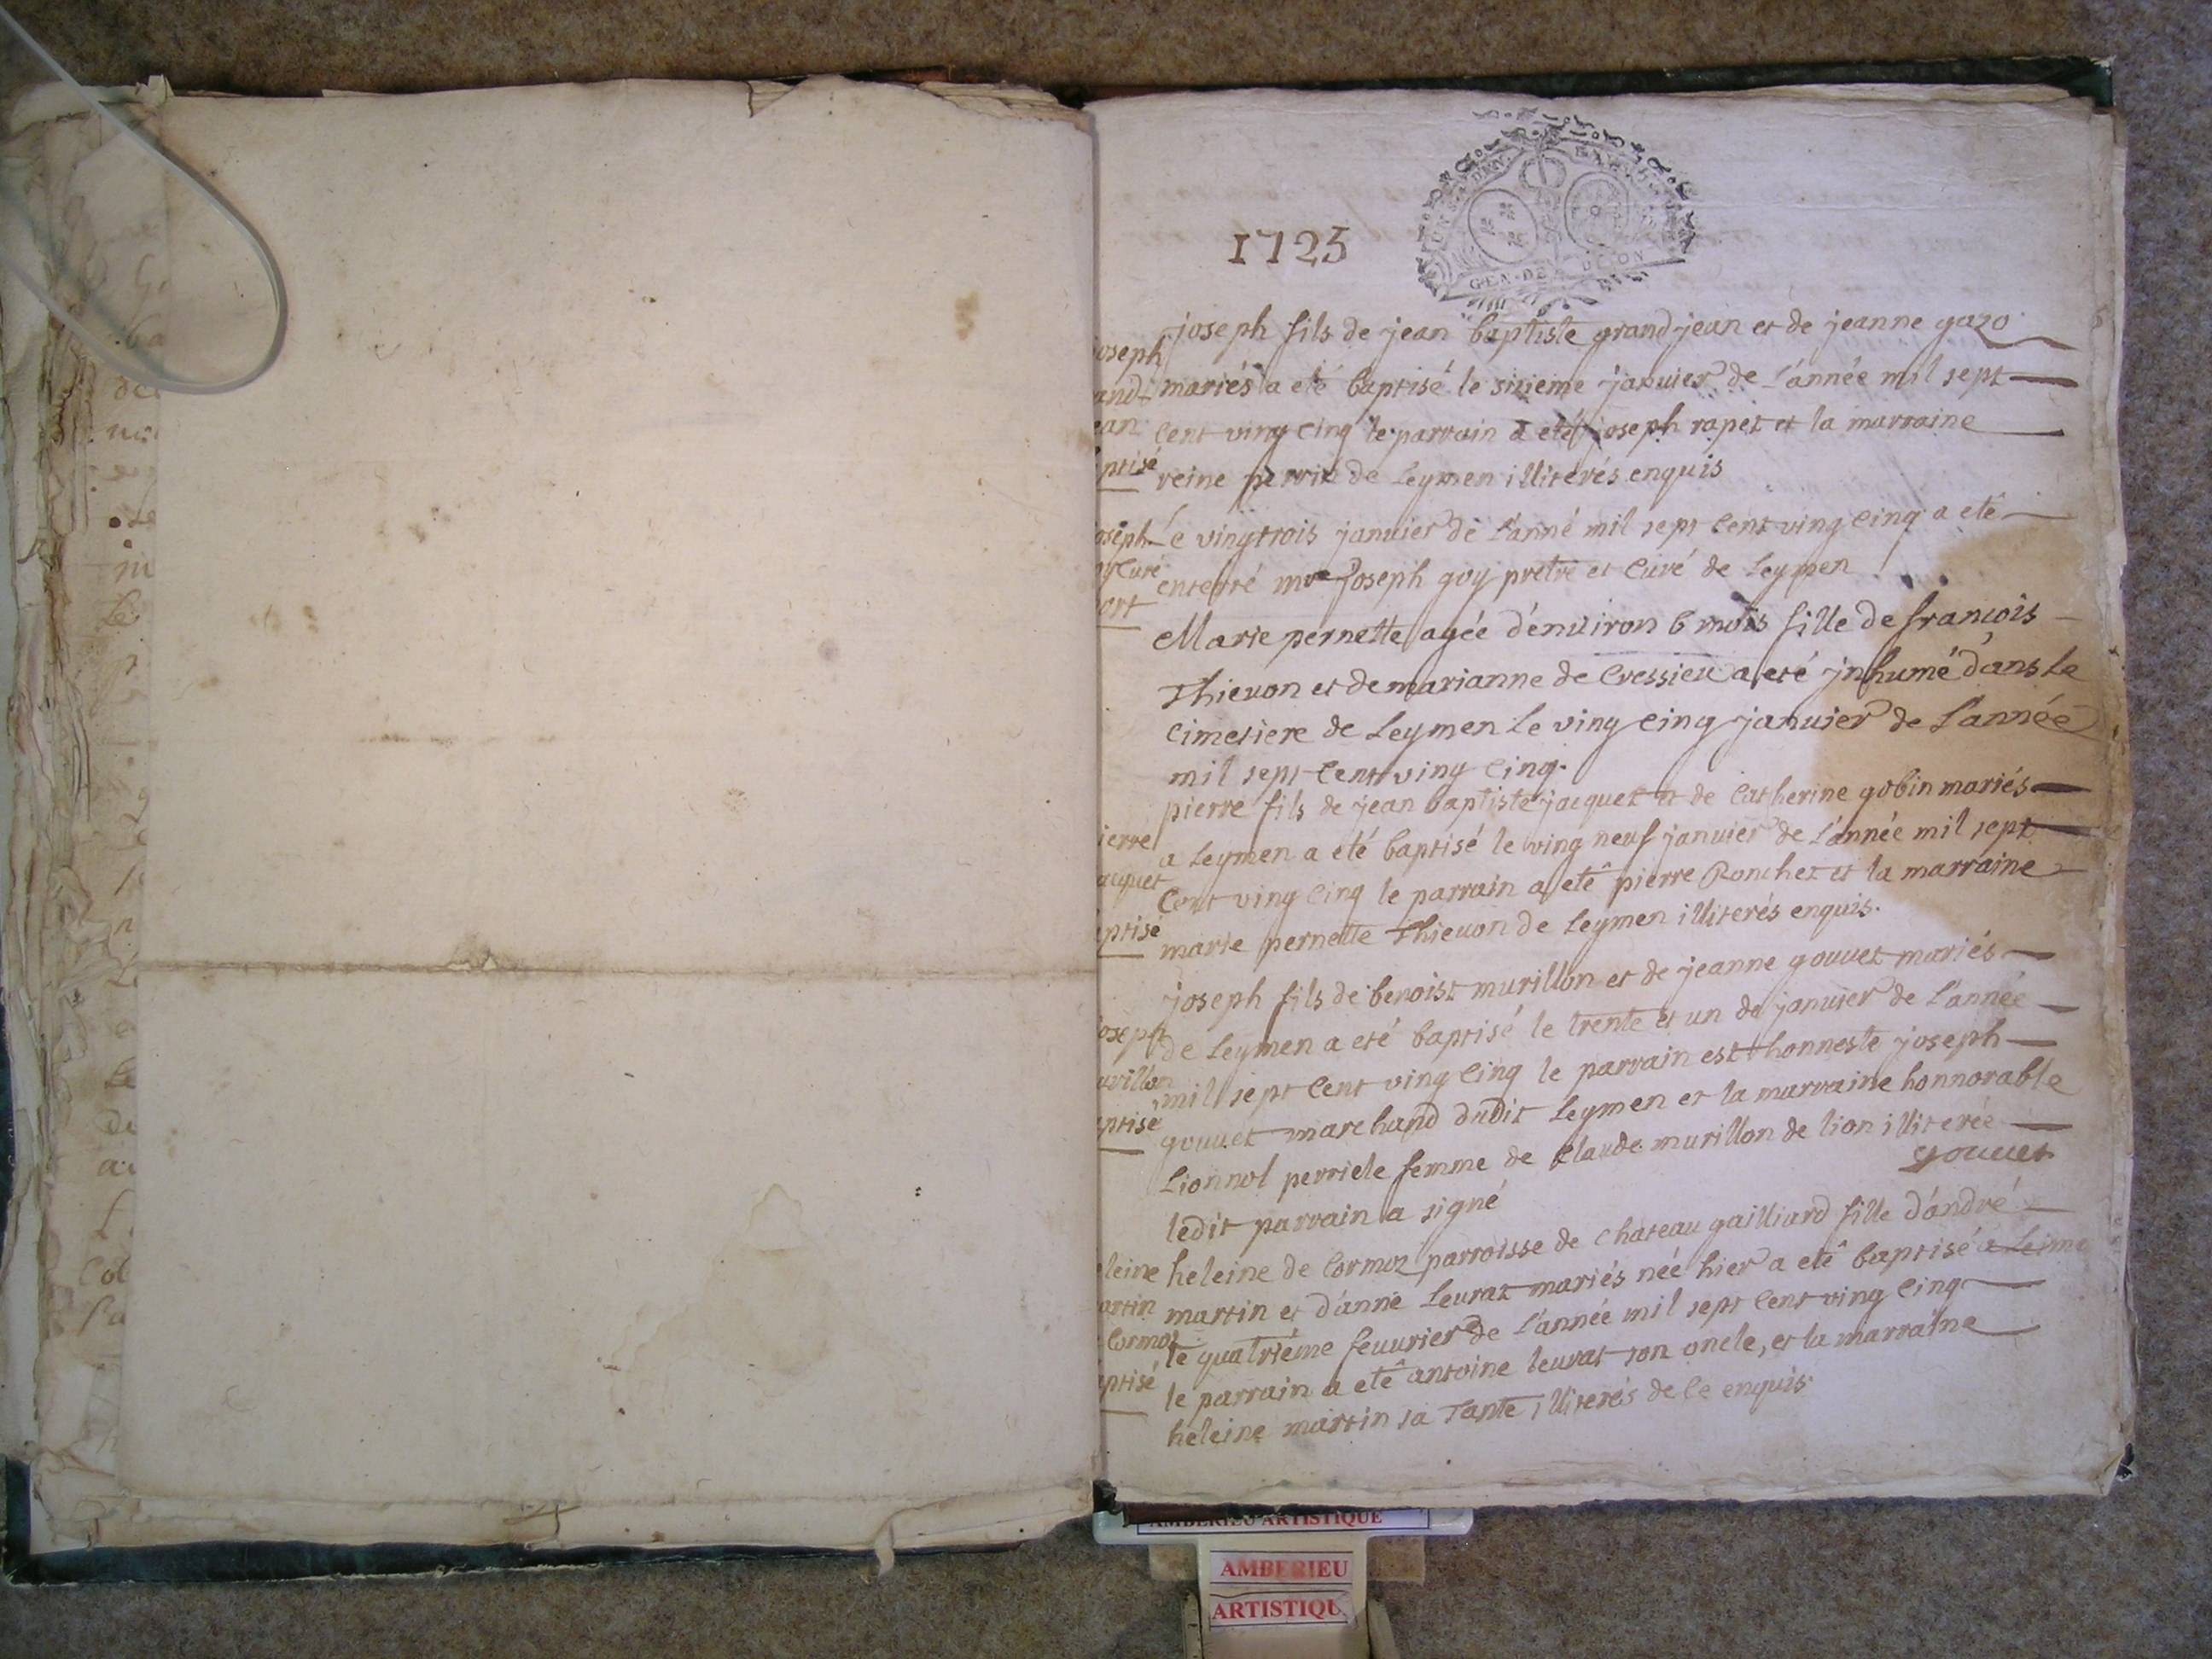 1725
GEN · DE DIJON
joseph fils de jean baptiste grand jean et de jeanne gazo
mariés a eté baptisé le sizieme januier de l'année mil sept
cent ving cinq le parrain a eté joseph rapet et la marraine
reine perrin de Leymen illiterés enquis
Le vingtrois januier de l'anné mil sept cent ving cinq a eté
enterré mre Joseph goy pretre et curé de Leymen
Marie pernette agée d'enuiron 6 mois fille de françois
Thieuon et de marianne de Cressieu a eté jnhumé dans le
cimetiere de Leymen Le ving cinq januier de l'année
mil sept cent ving cinq.
pierre fils de jean baptiste jacquet et de Catherine gobin mariés
a Leymen a eté baptisé le ving neuf januier de l'année mil sept
cent ving cinq le parrain a eté pierre Ronchet et la marraine
marie pernette Thieuon de Leymen illiterés enquis.
joseph fils de benoist murillon et de jeanne gouuet mariés
de Leymen a eté baptisé le trente et un de januier de l'année
mil sept cent ving cinq le parrain est honneste joseph
gouuet marchand dudit Leymen et la marraine honnorable
Lionnol perriele femme de claude murillon de lion illiterée
ledit parrain a signé gouuet
heleine de Cormoz parroisse de chateau gailliard fille d'andré
martin et d'anne Leurat mariés née hier a eté baptisé a Leime
le quatriéme feuurier de l'année mil sept cent ving cinq
le parrain a eté antoine leurat son oncle, et la marraine
heleine martin sa Tante illiterés de ce enquis
joseph
and
ean
ptisé
oseph
y Curé
ort
ierre
acquet
ptisé
oseph
urillon
ptisé
leine
artin
Cormoz
ptisé
AMBERIEU ARTISTIQUE
AMBERIEU
ARTISTIQU